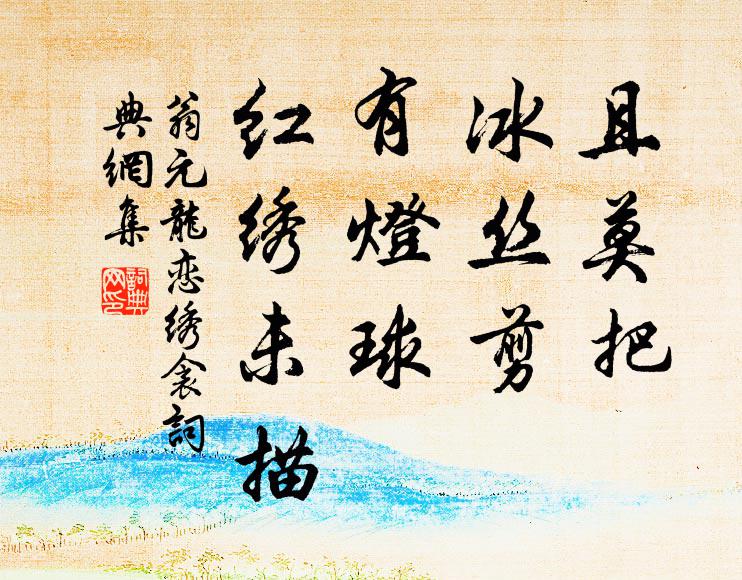 且莫把
冰丝剪
有燈球
红绣未描
翁元龍恋绣衾詞
典網集
詞典
网印